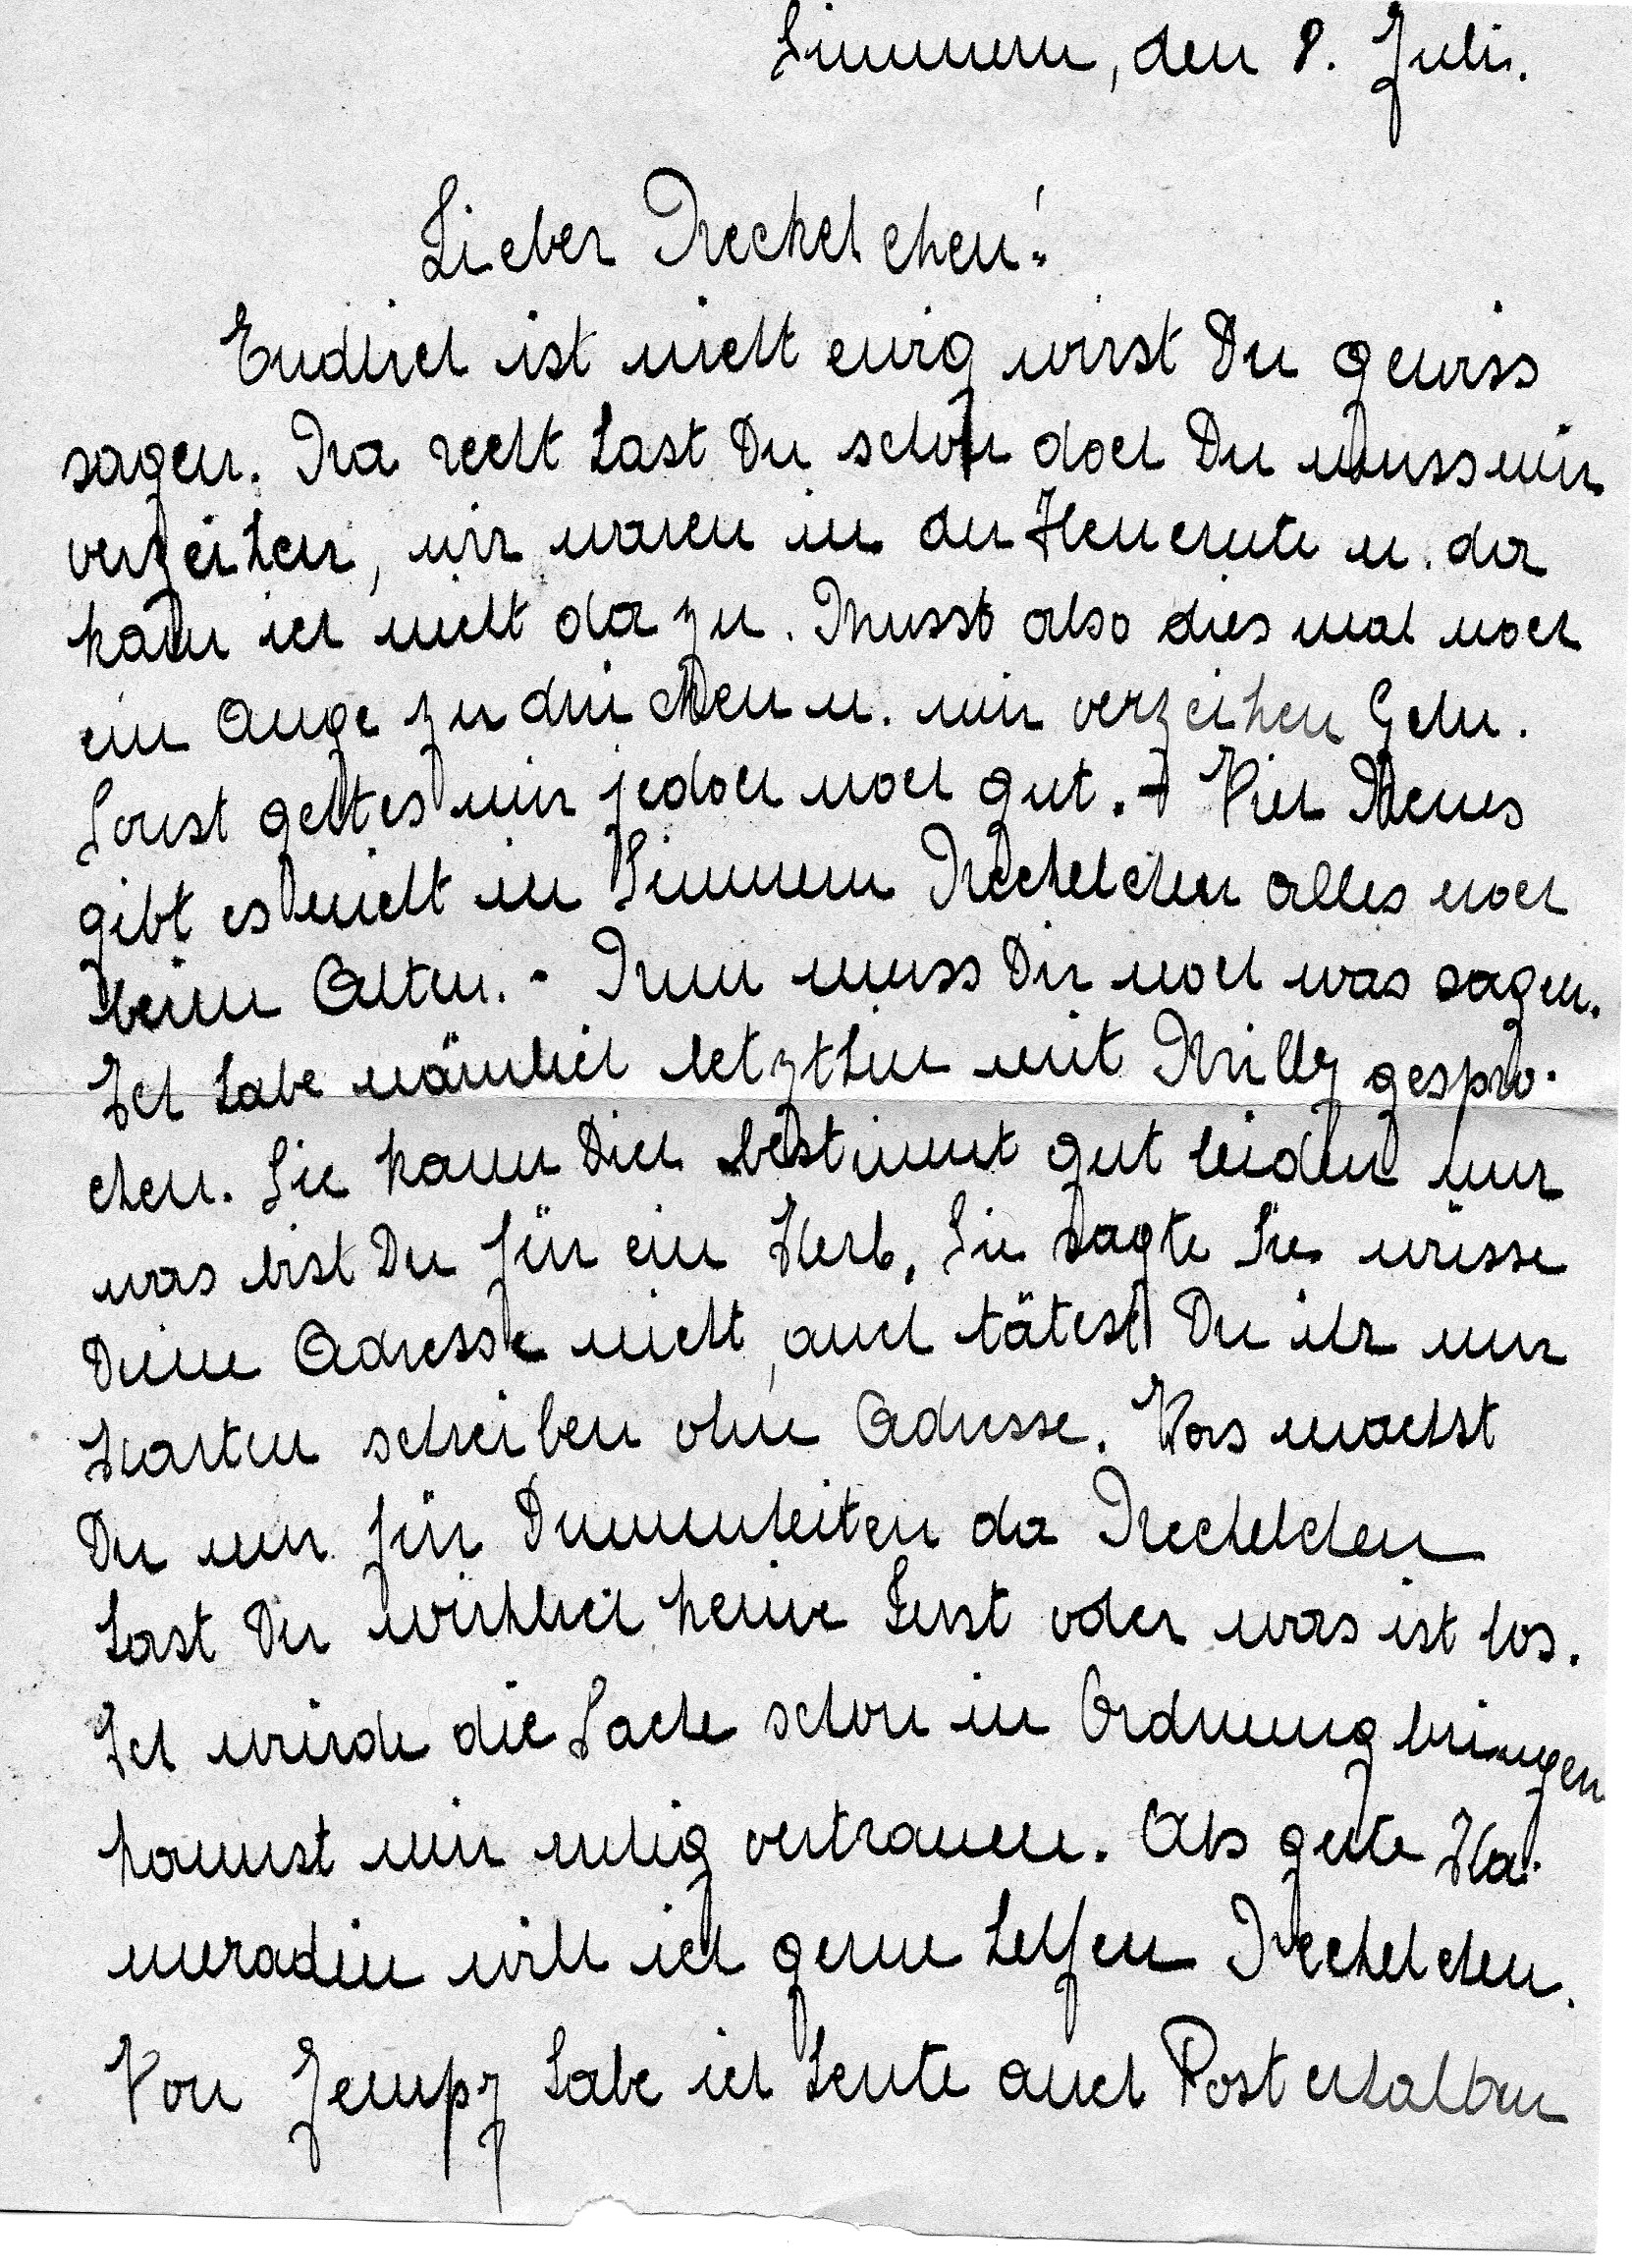 Simmern, den 8. Juli.
Lieber Neckelchen!
Endlich ist nicht ewig wirst Du gewiss
sagen. Na recht hast Du schon doch Du muss mir
verzeihen, wir waren in der Heuernte u. da
kam ich nicht dazu. Musst also dies mal noch
ein Auge zudrücken u. mir verzeihen Gelu.
Sonst geht es mir jedoch noch gut. - Viel Neues
gibt es nicht in Simmern Neckelchen alles noch
beim Alten. - Nun muss Dir noch was sagen.
Ich habe nämlich letzthin mit Milly gespro-
chen. Sie kann Dich bestimmt gut leiden nur
was bist Du für ein Held. Sie sagte Sie wisse
Deine Adresse nicht, auch tätest Du ihr nur
Karten schreiben ohne Adresse. Was machst
Du nur für Dummheiten da Neckelchen
hast Du wirklich keine Lust oder was ist los.
Ich würde die Sache schon in Ordnung bringen
kannst mir ruhig vertrauen. Als gute Ka-
meradin will ich gerne helfen Neckelchen.
Von Jempy habe ich heute auch Post erhalten